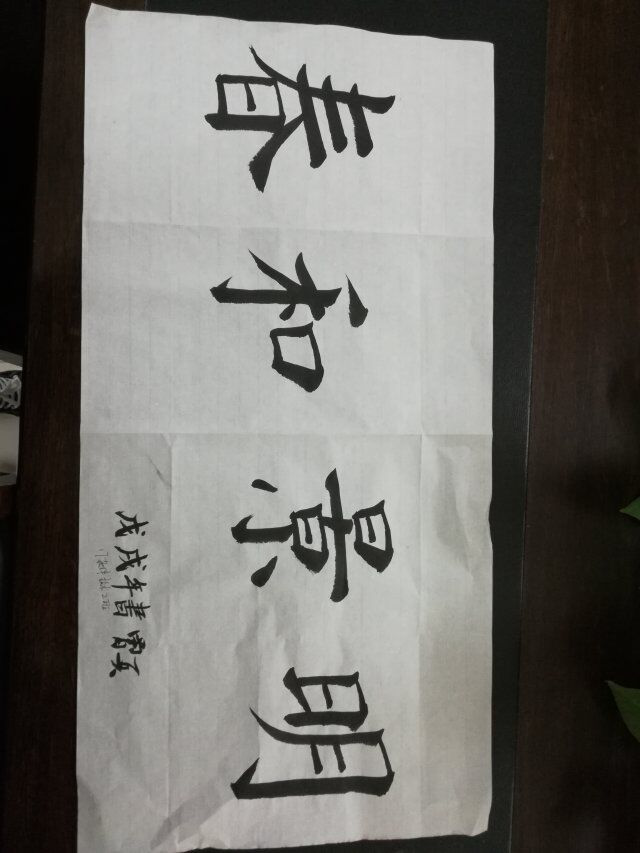 春和景明
戊戌年書